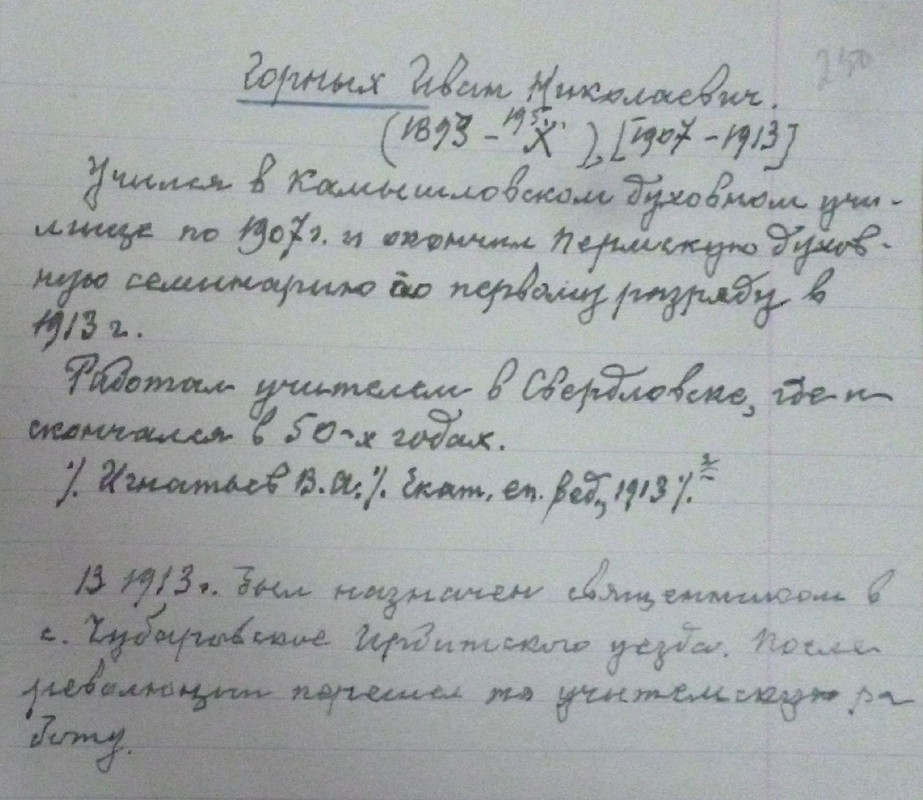 250
Горных Иван Николаевич.
(1893 – 195 X ), [1907 – 1913]
Учился в Камышловском духовном учи-
лище по 1907 г. и окончил Пермскую духов-
ную семинарию по первому разряду в
1913 г.
Работал учителем в Свердловске, где и
скончался в 50-х годах.
%. Игнатьев В.А. %. Екат. еп. вед. 1913 %.
В 1913 г. был назначен священником в
с. Чубаровское Ирбитского уезда. После
революции перешел на учительскую ра
боту.